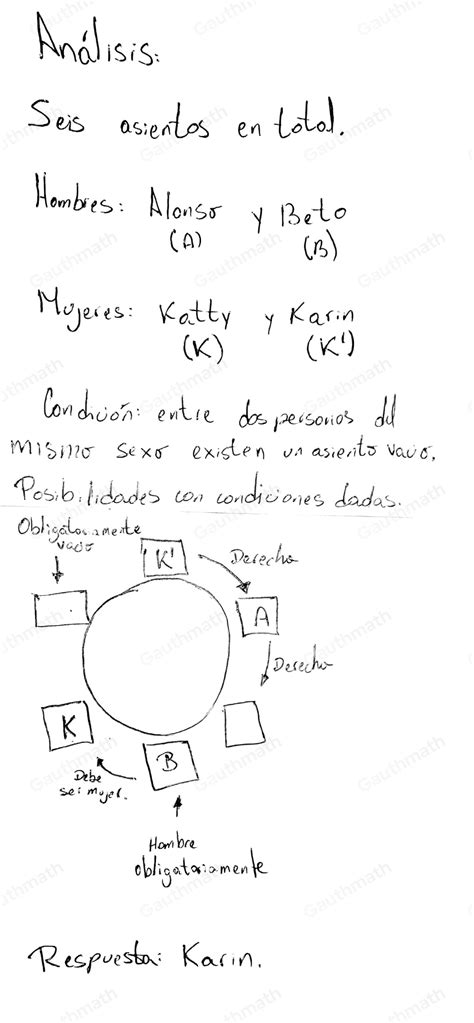 Análisis:
Seis asientos en total.
Hombres: Alonso y Beto
(A) (B)
Mujeres: Katty y Karin
(K) (K')
Condición: entre dos personas del
mismo sexo existen un asiento vacio.
Posibilidades con condiciones dadas.
Obligatoriamente
vacio
K'
Derecho
A
Derecho
K
B
Debe
ser mujer.
Hombre
obligatoriamente
Respuesta: Karin.